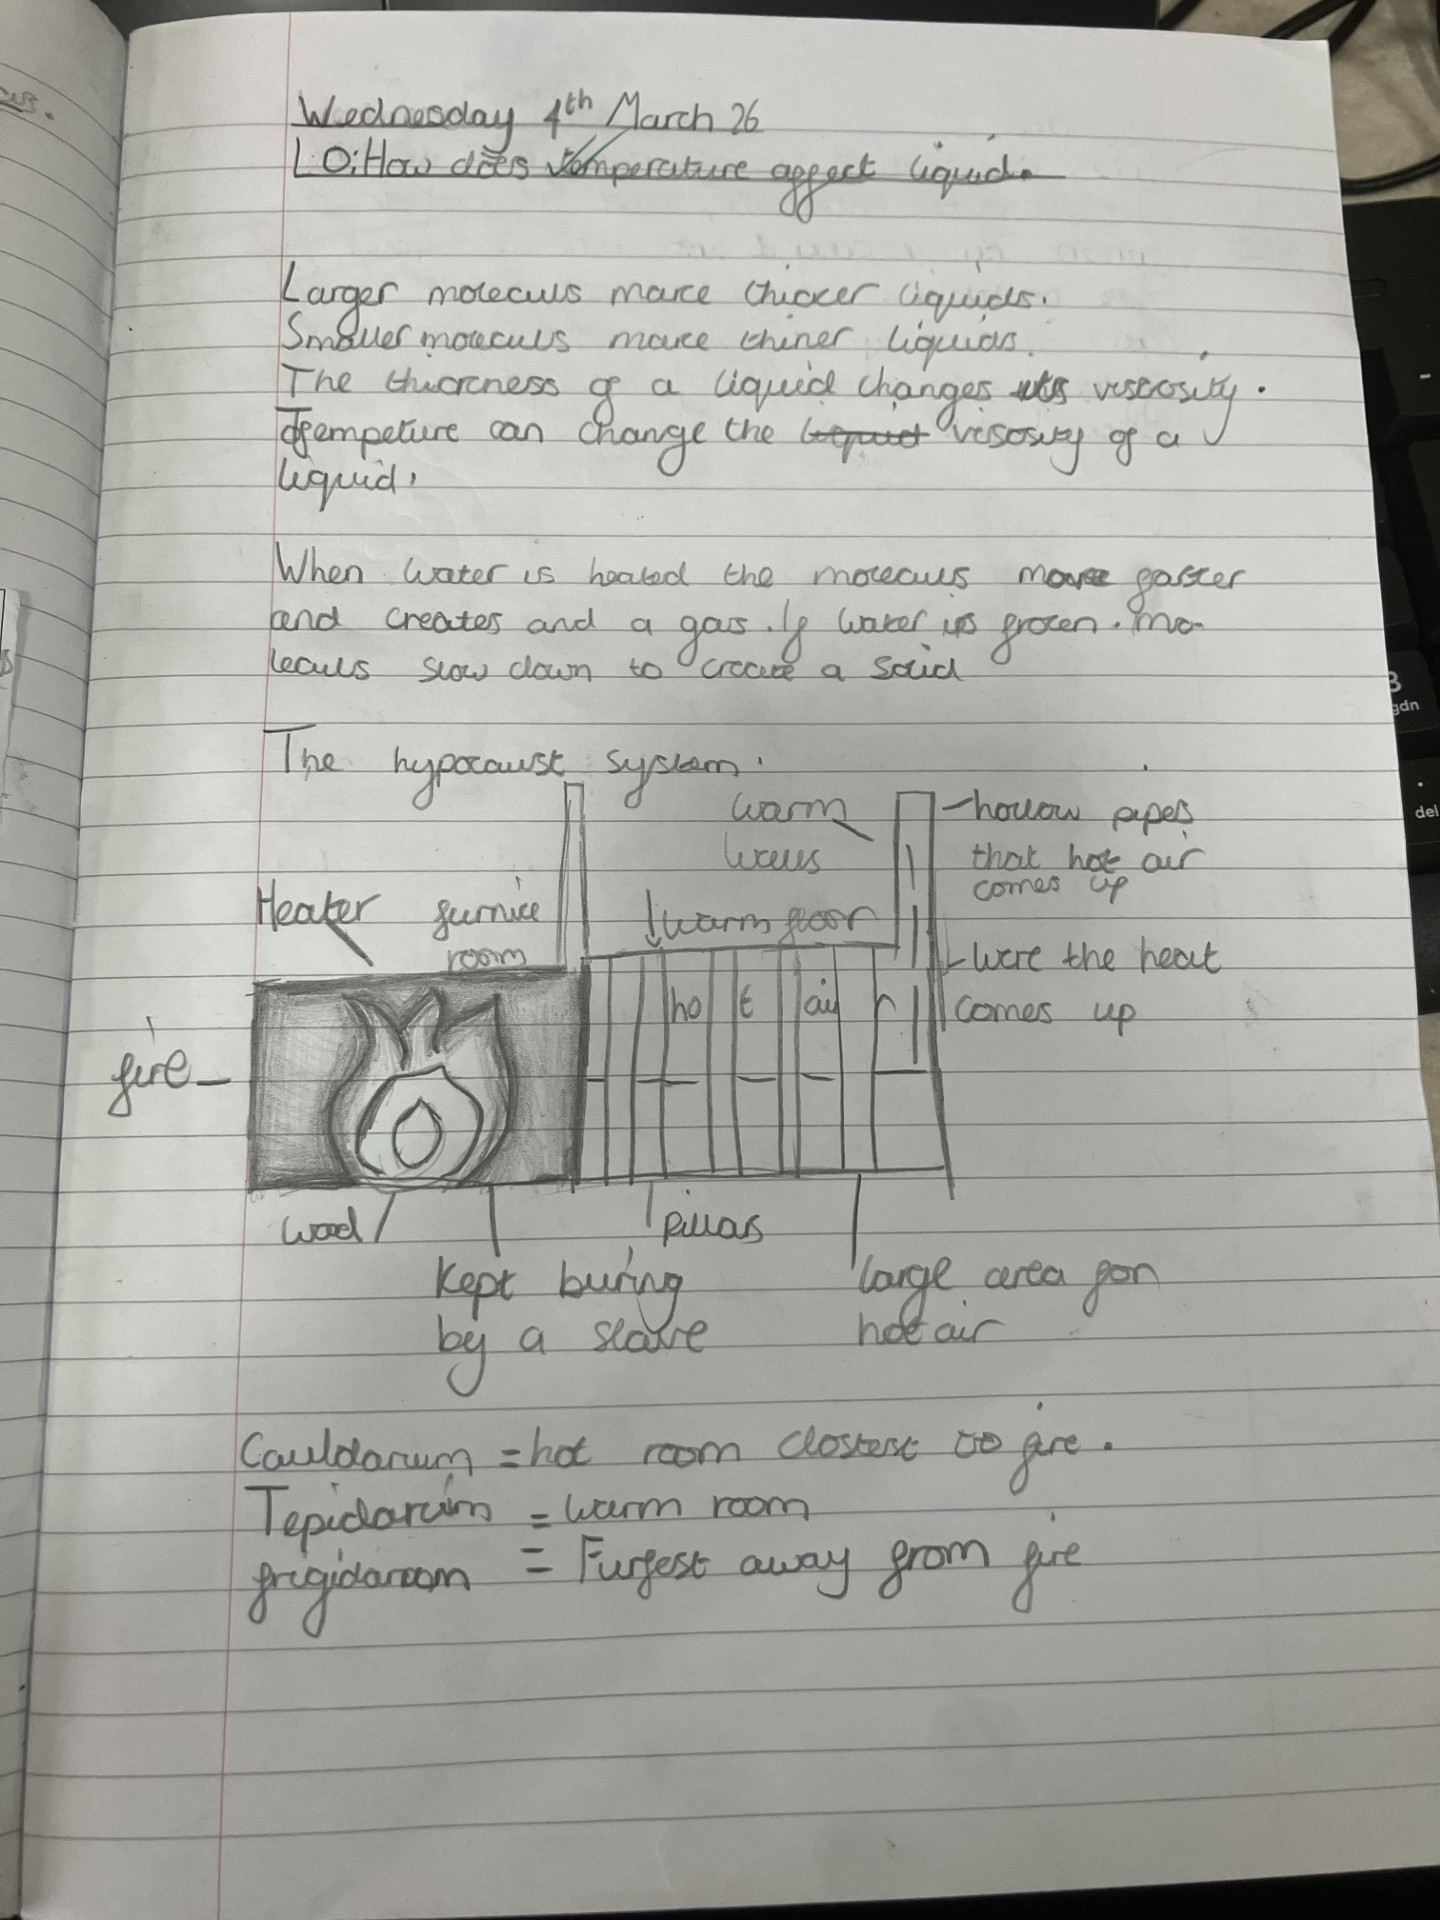 Wednesday 4th March 26
LO: How does temperature affect liquid.
Larger moleculs make thicker liquids.
Smaller moleculs make thiner liquids.
The thickness of a liquid changes its viscosity.
Tempeture can change the liquid visosity of a
liquid.
When water is heated the moleculs move faster
and creates and a gas. If water is frozen. Mo-
leculs slow down to create a solid
The hypocaust system.
warm
walls
hollow pipes
that hot air
comes up
Heater
furnice
room
warm floor
Were the heat
comes up
hot air
fire
wood
pillars
Kept buring
by a slave
large area for
hot air
Cauldarium = hot room clostest to fire.
Tepidarium = warm room
frigidaroom = Furfest away from fire
B
gdn
.
del
-